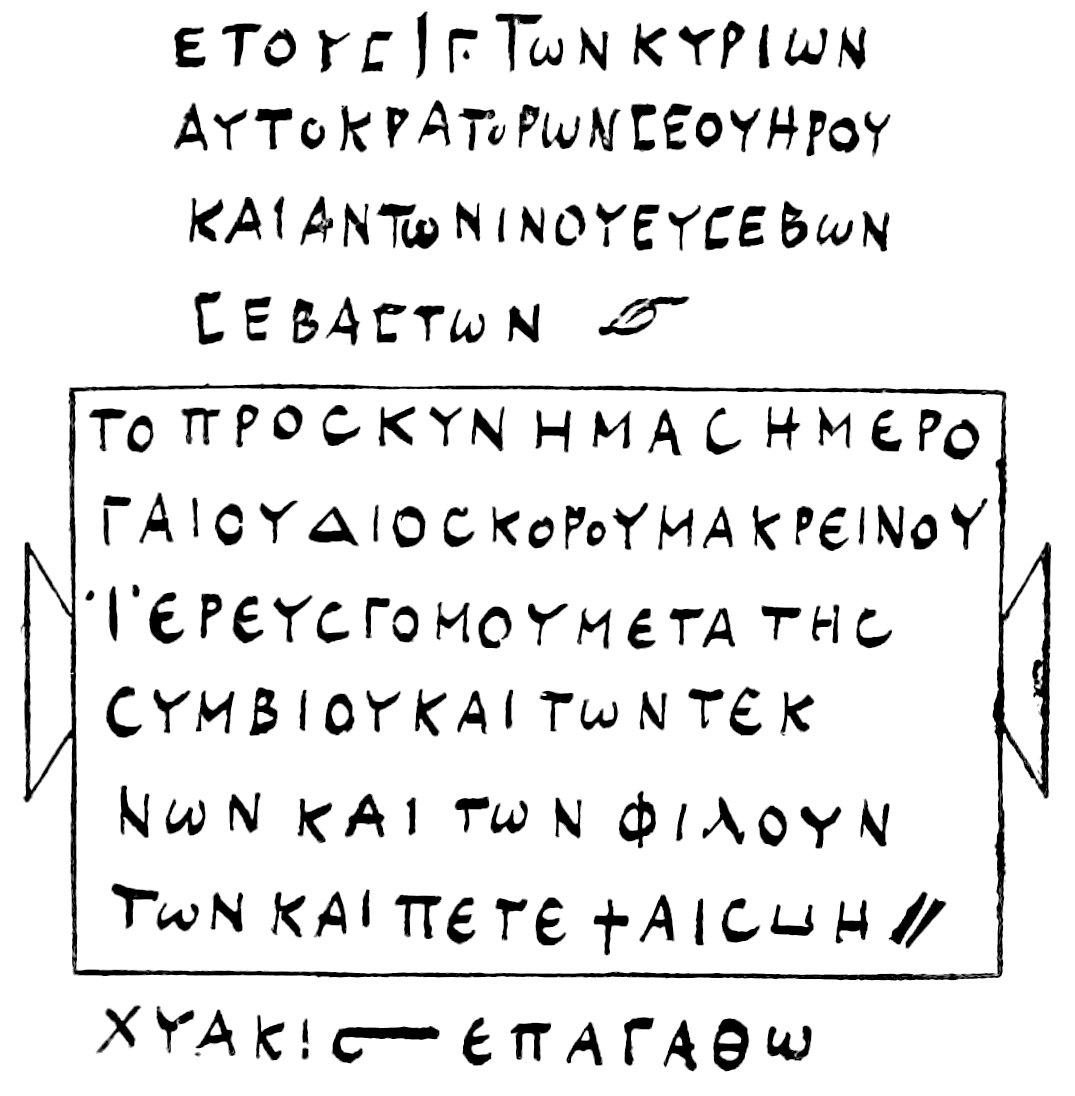 ΕΤΟΥΣ ΤΩΝ ΚΥΡΙΩΝ
ΑΥΤΟΚΡΑΤΟΡΩΝ ΣΕΟΥΗΡΟΥ
ΚΑΙ ΑΝΤΩΝΙΝΟΥ ΕΥΣΕΒΩΝ
ΣΕΒΑΣΤΩΝ
ΤΟ ΠΡΟΣΚΥΝΗΜΑ ΣΗΜΕΡΟ
ΓΑΙΟΥ ΔΙΟΣΚΟΡΟΥ ΜΑΚΡΕΙΝΟΥ
ΪΕΡΕΥΣ ΓΟΜΟΥ ΜΕΤΑ ΤΗΣ
ΣΥΜΒΙΟΥ ΚΑΙ ΤΩΝ ΤΕΚ
ΝΩΝ ΚΑΙ ΤΩΝ ΦΙΛΟΥΝ
ΤΩΝ ΚΑΙ ΠΕΤΕϮΑΙΣΩΗ //
ΧΥΑΚ ΕΠΑΓΑΘΩ